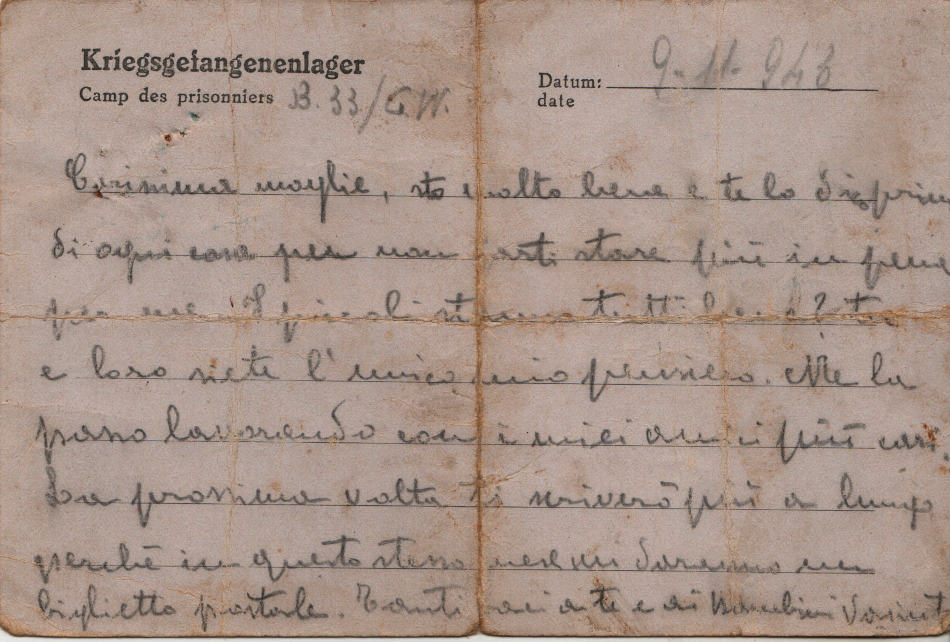 Kriegsgefangenenlager
Camp des prisonniers B. 33/G.W.
Datum: 9-11-943
date
Carissima moglie, sto molto bene e te lo dico prima
di ogni cosa per non farti stare più in pena
per me. I piccoli stanno tutti bene? tu
e loro siete l'unico mio pensiero. Me la
passo lavorando con i miei amici più cari.
La prossima volta ti scriverò più a lungo
perchè in questo stesso mese mi daranno un
biglietto postale. Tanti baci a te e ai bambini